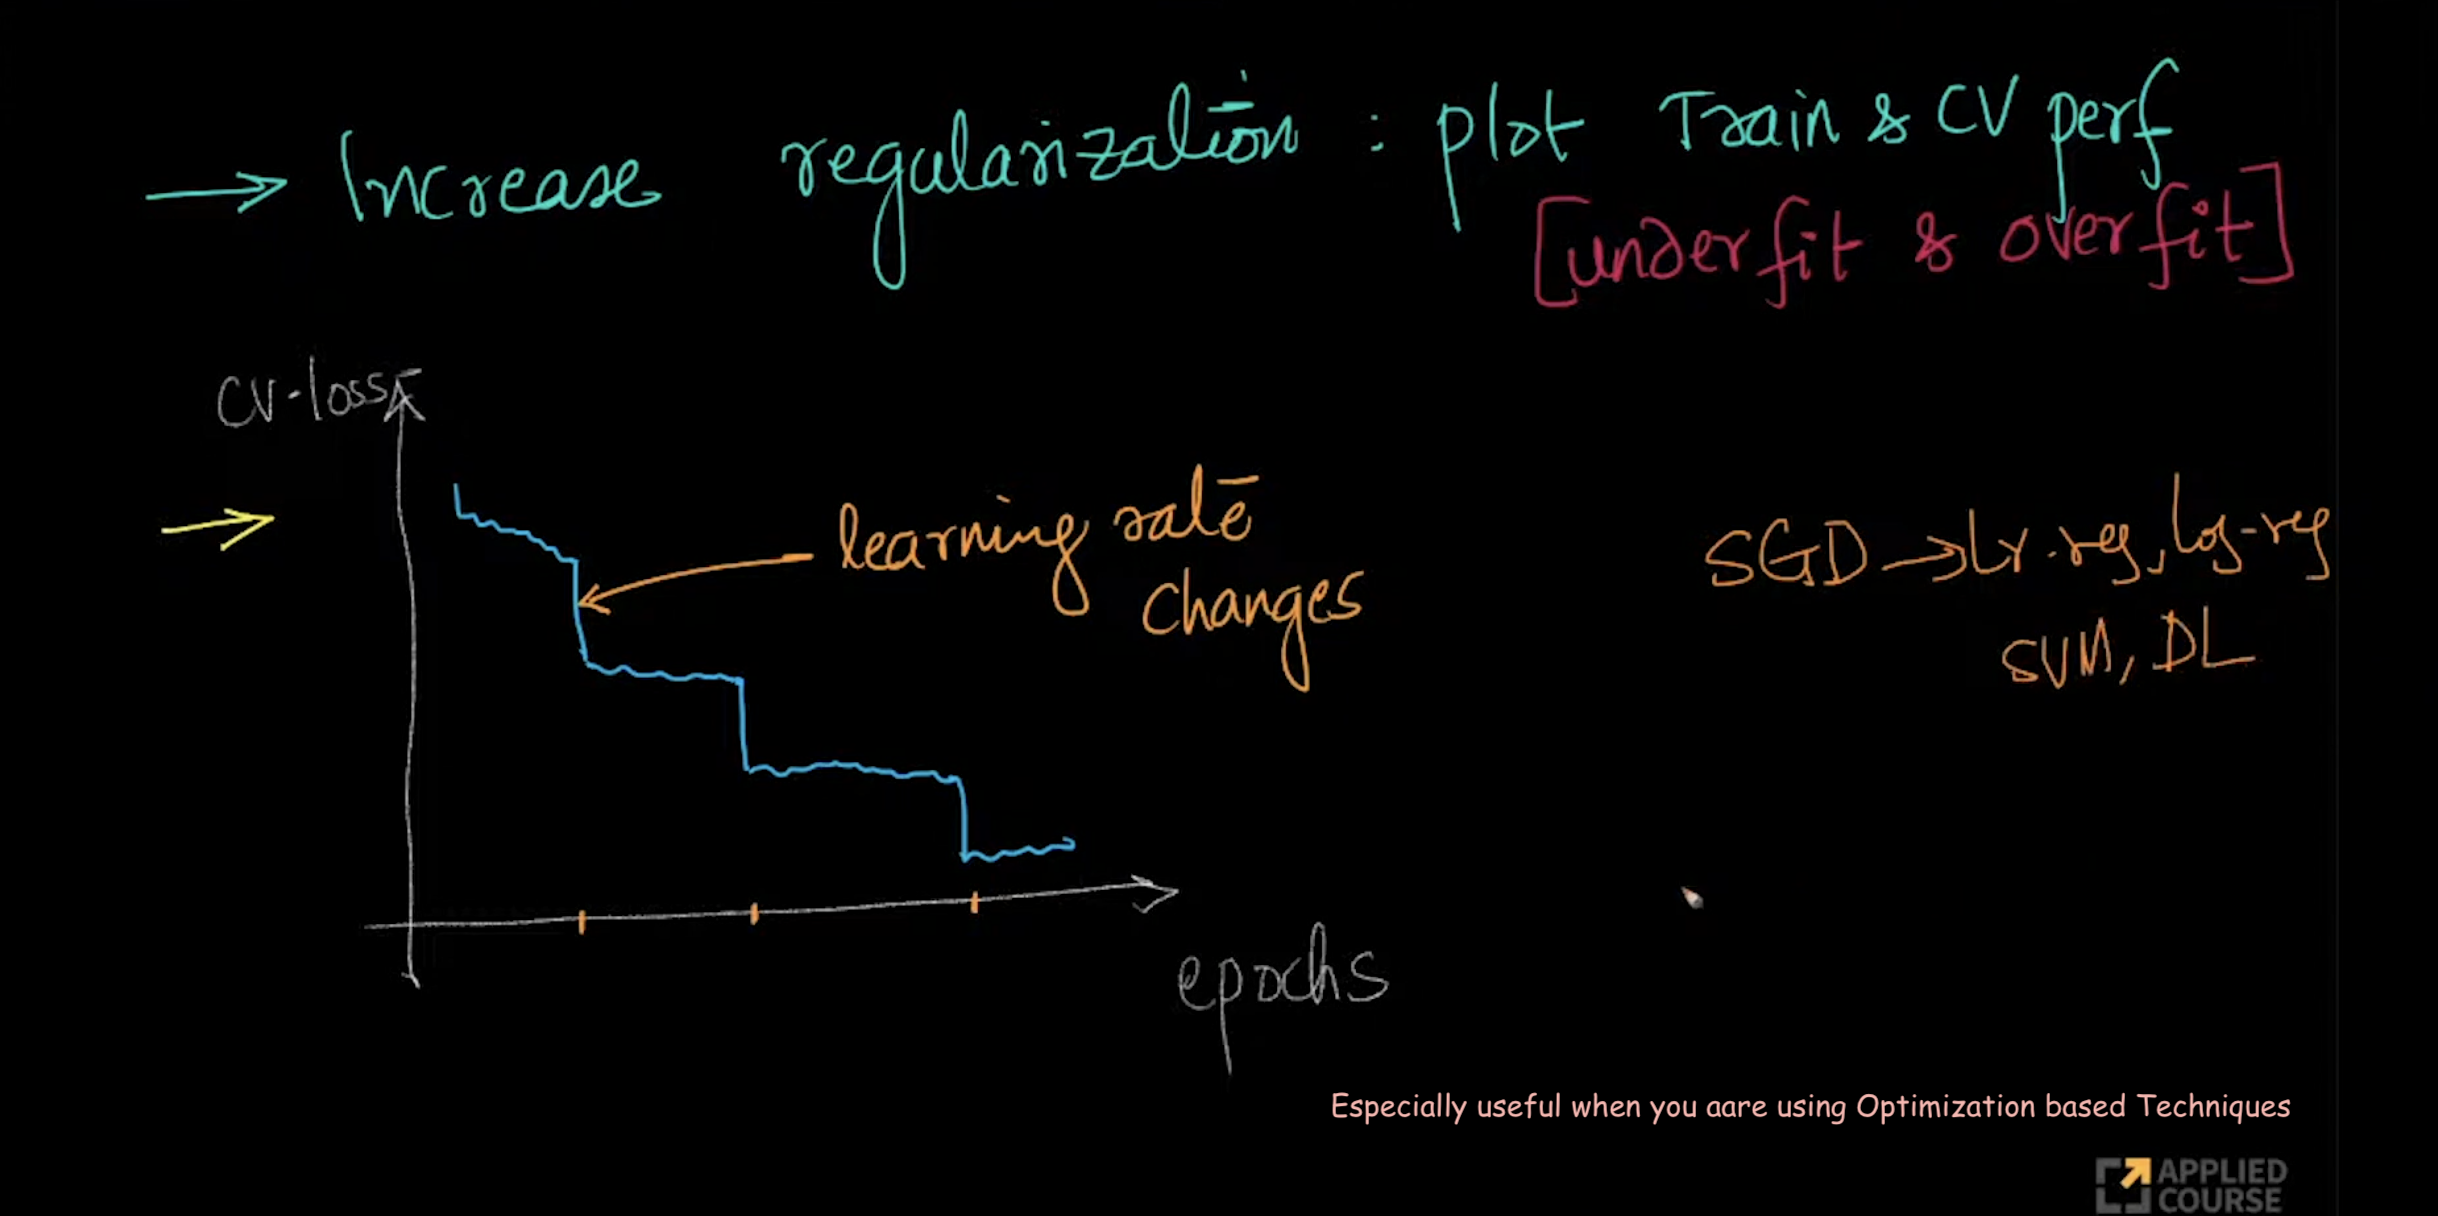 → Increase regularization : plot Train & CV perf
[underfit & overfit]
CV-loss
learning rate
changes
SGD → Lr.reg, Log-reg
SVM, DL
epochs
Especially useful when you aare using Optimization based Techniques
APPLIED
COURSE